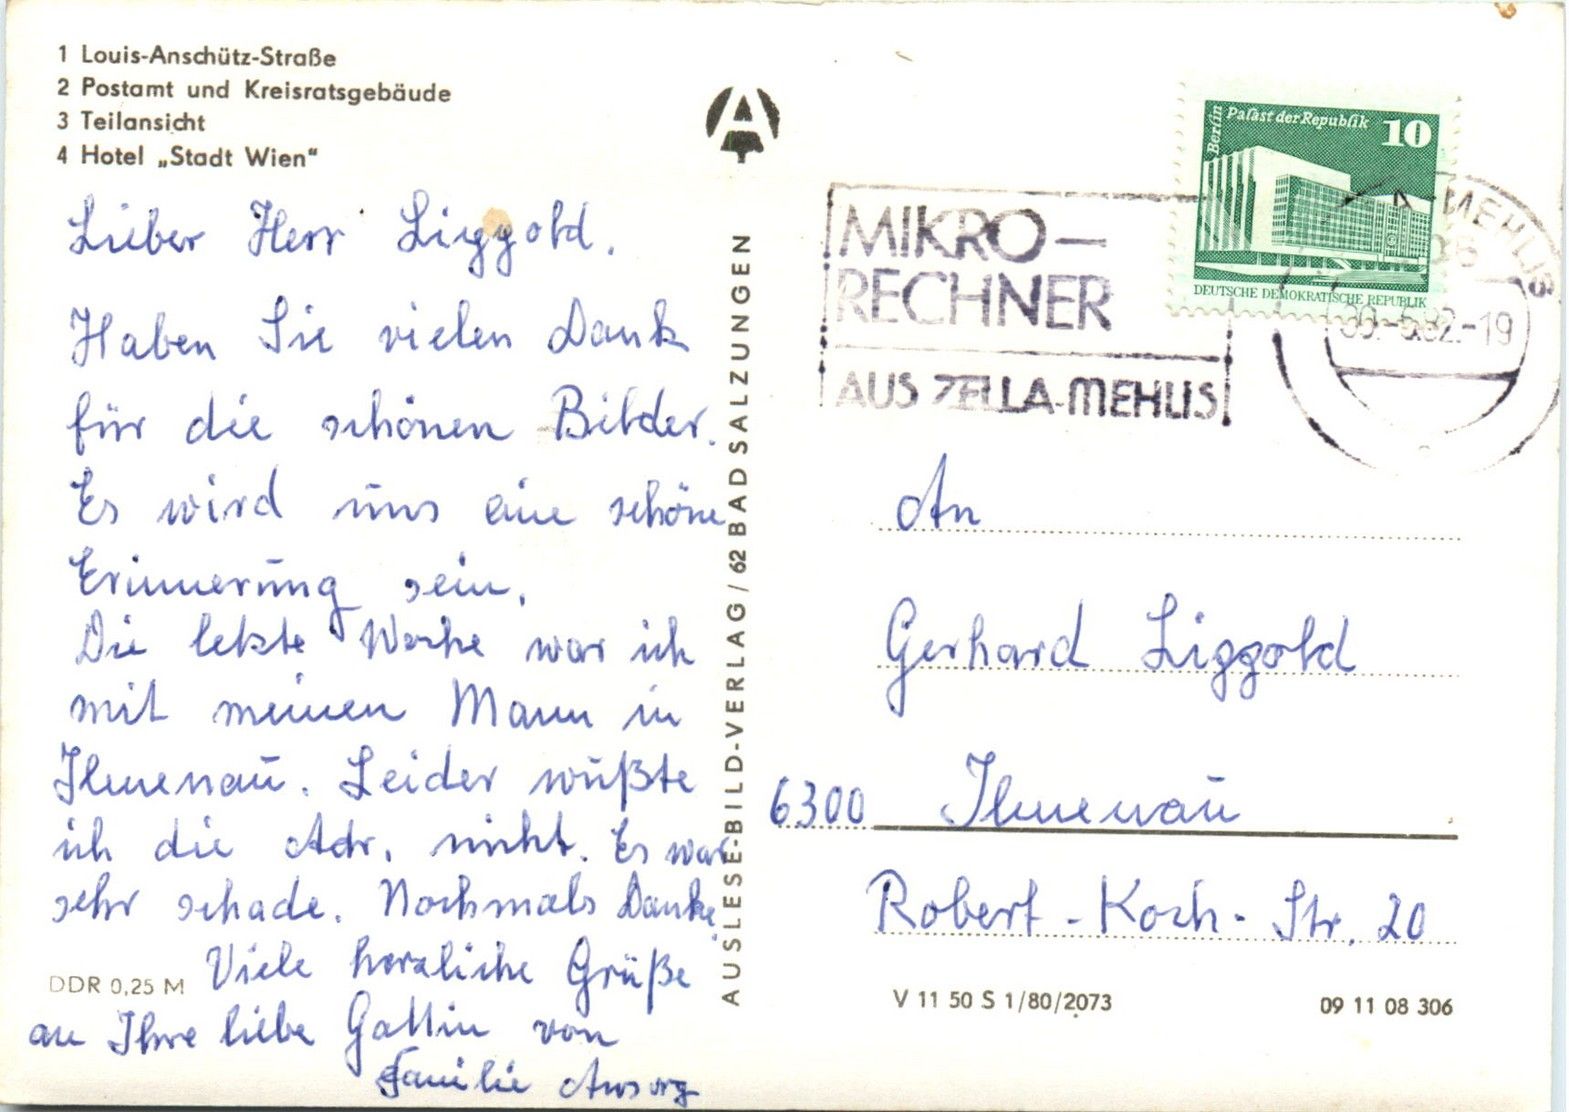 1 Louis-Anschütz-Straße
2 Postamt und Kreisratsgebäude
3 Teilansicht
4 Hotel „Stadt Wien“
Lieber Herr Liggold.
Haben Sie vielen Dank
für die schönen Bilder.
Es wird uns eine schöne
Erinnerung sein.
Die letzte Woche war ich
mit meinen Mann in
Ilmenau. Leider wußte
ich die Adr. nicht. Es war
sehr schade. Nochmals Danke.
Viele herzliche Grüße
an Ihre liebe Gattin von
Familie Ansorg
DDR 0,25 M
AUSLESE-BILD-VERLAG / 62 BAD SALZUNGEN
MIKRO-
RECHNER
AUS ZELLA-MEHLIS
Berlin
Palast der Republik
10
DEUTSCHE DEMOKRATISCHE REPUBLIK
A-MEHLIS
06
30.-5.82.-19
An
Gerhard Liggold
6300 Ilmenau
Robert-Koch-Str. 20
V 11 50 S 1/80/2073
09 11 08 306